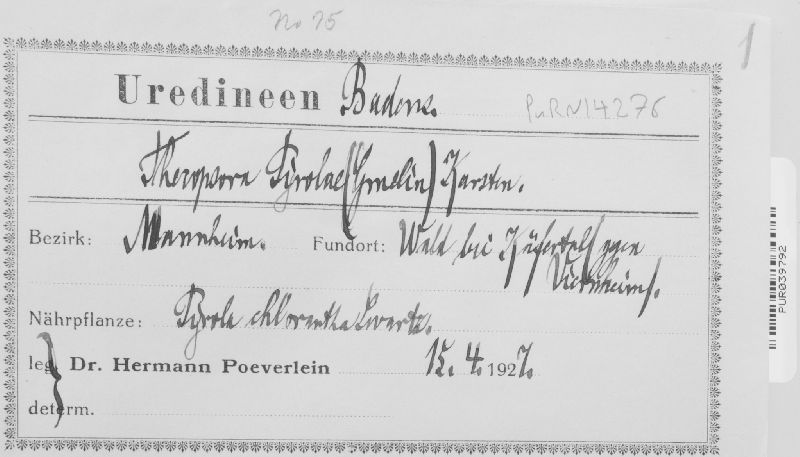 No 75
1
Uredineen Badens.
PURN14276
Thecopsora Pyrolae (Gmelin) Karsten.
Bezirk: Mannheim. Fundort: Wald bei Käfertal (gegen
Viernheim).
Nährpflanze: Pyrola chlorantha Swartz.
leg. Dr. Hermann Poeverlein 15. 4. 1927.
determ.
PUR039792